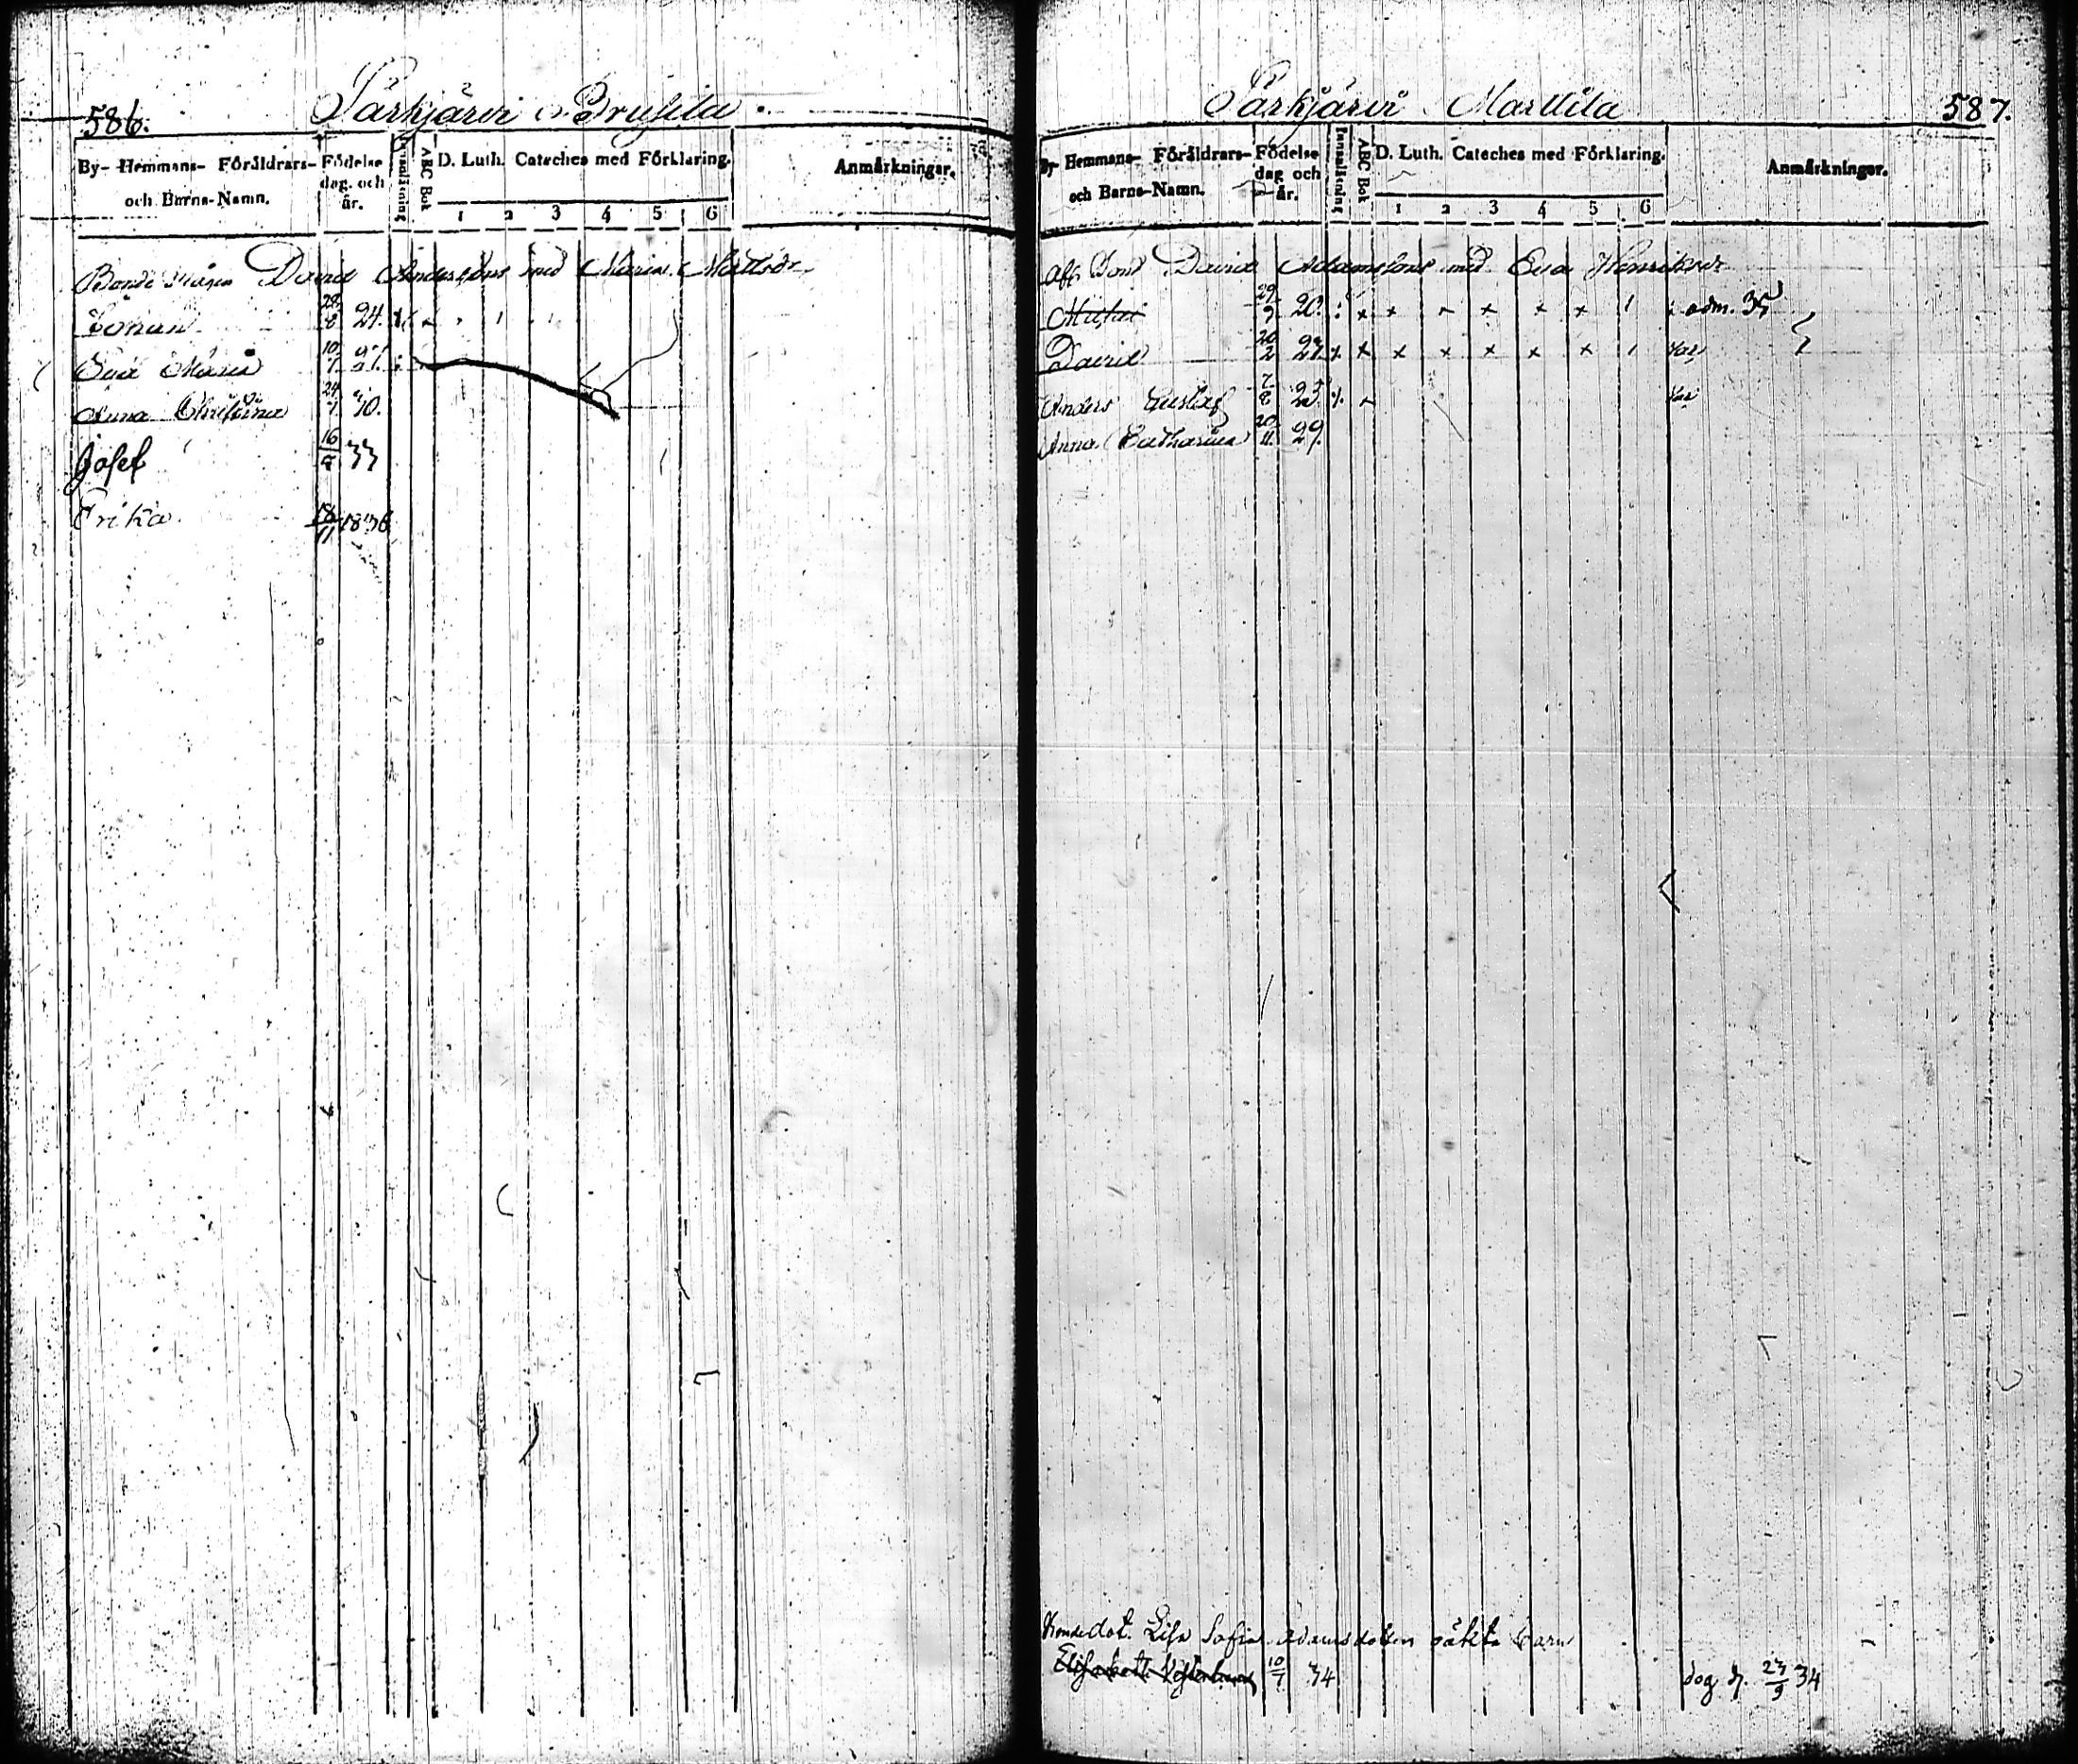 586. Särkjärvi Prusila
By- Hemmans- Föräldrars- och Barns-Namn. Födelse dag. och år. Innanläsning ABC Bok D. Luth. Cateches med Förklaring. Anmärkningar.
1 2 3 4 5 6
Bonde David Anderssons med Maria Mattsdr
Johan 28/8 24.
Eva Maria 10/7 27.
Anna Christina 24/7 30.
Josef 16/9 33
Erika 18/11 1836
Särkjärvi Marttila 587.
By- Hemmans- Föräldrars- och Barns-Namn. Födelse dag och år. Innanläsning ABC Bok D. Luth. Cateches med Förklaring. Anmärkningar.
1 2 3 4 5 6
Afl. Bond David Adamssons med Eva Henriksdr
29/9 20. x x x x x x 1 adm. 35
David 20/2 x x x x x x 1
Anders Gustaf 7/8 23.
Anna Catharina 20/11 29.
Bondedot. Lisa Sofia Adamsdotters oäkta barn
Elisabeth 10/7 34 dog d. 23/9 34